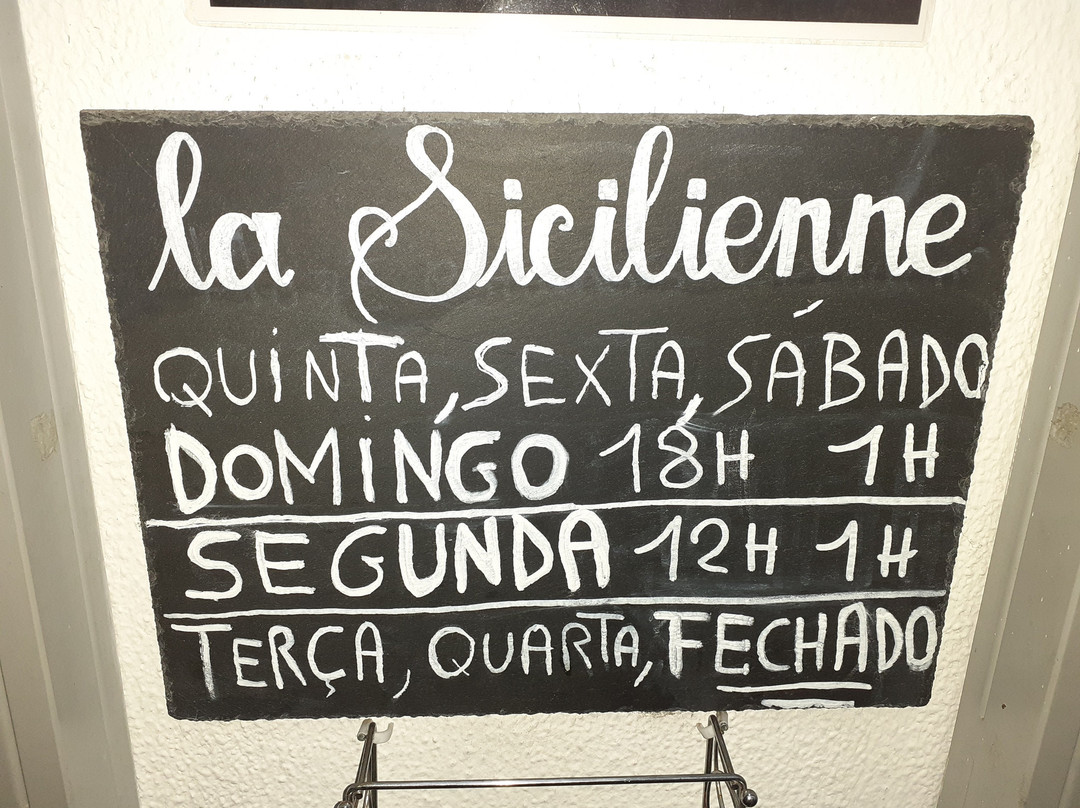 la Sicilienne
QUINTA, SEXTA, SÁBADO
DOMINGO 18H 1H
SEGUNDA 12H 1H
TERÇA, QUARTA, FECHADO